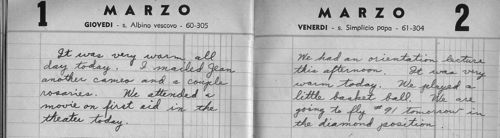 1 MARZO
GIOVEDI - s. Albino vescovo - 60-305
It was very warm all
day today. I mailed Jean
another cameo and a couple
rosaries. We attended a
movie on first aid in the
theater today.
MARZO 2
VENERDI - s. Simplicio papa - 61-304
We had an orientation lecture
this afternoon. It was very
warm today. We played a
little basket ball. We are
going to fly #91 tomorrow in
the diamond position.